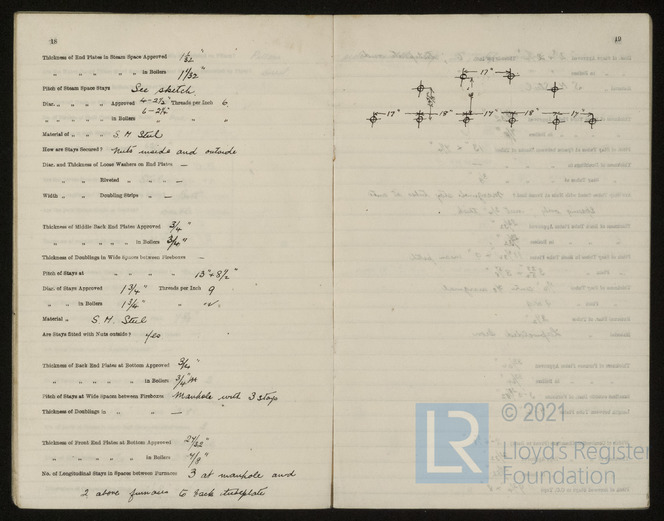 18
Thickness of End Plates in Steam Space Approved 1 1/32"
" " " " " in Boilers 1 1/32"
Pitch of Steam Space Stays See sketch
Diar. " " " " Approved 4-2 1/2" Threads per Inch 6
" " " " in Boilers 6-2 3/4" " "
Material of " " S. M. Steel
How are Stays Secured? Nuts inside and outside
Diar. and Thickness of Loose Washers on End Plates —
" " Riveted " " —
Width " " Doubling Strips " —
Thickness of Middle Back End Plates Approved 3/4"
" " " " " in Boilers 3/4"
Thickness of Doublings in Wide Spaces between Fireboxes —
Pitch of Stays at " " " " 13" + 8 1/2"
Diar. of Stays Approved 1 3/4" Threads per Inch 9
" " in Boilers 1 3/4" "
Material " S. M. Steel
Are Stays fitted with Nuts outside? Yes
Thickness of Back End Plates at Bottom Approved 3/4"
" " " " " in Boilers 3/4"
Pitch of Stays at Wide Spaces between Fireboxes Manhole with 3 stays
Thickness of Doublings in " " —
Thickness of Front End Plates at Bottom Approved 27/32"
" " " " " in Boilers 7/8"
No. of Longitudinal Stays in Spaces between Furnaces 3 at manhole and
2 above furnaces to back tubeplate
19
17"
17" 18" 17" 18" 17"
LR © 2021
Lloyd's Register
Foundation